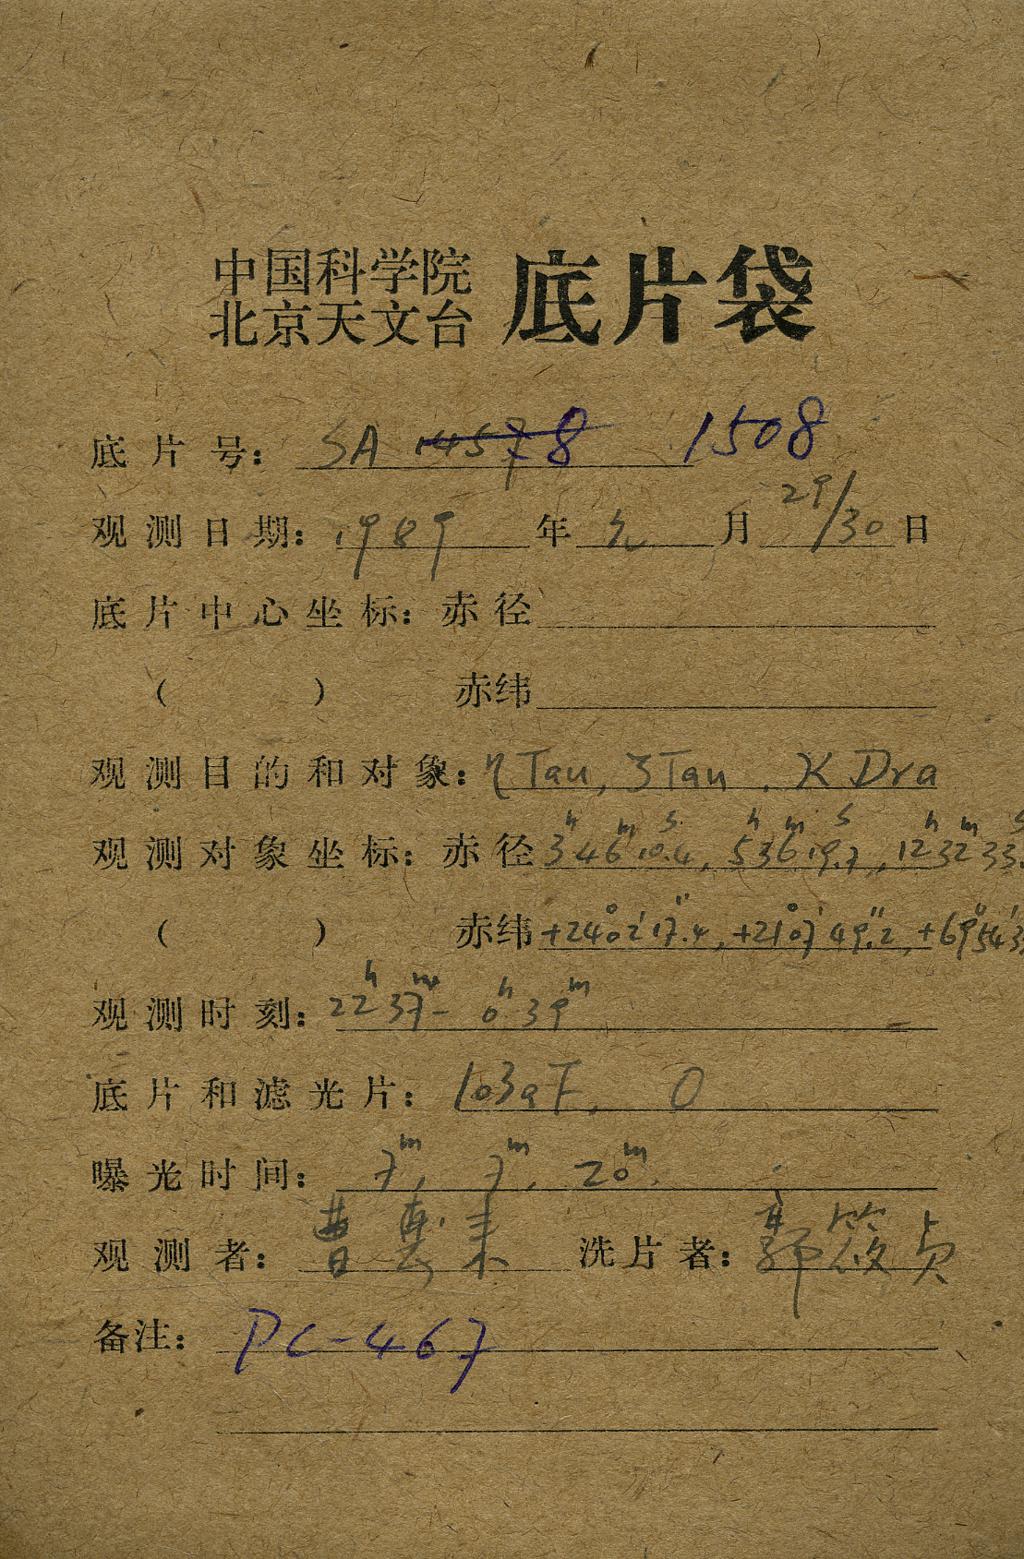 中国科学院
北京天文台 底片袋
底片号: SA 14578 1508
观测日期: 1989 年 元 月 29/30 日
底片中心坐标: 赤径
( ) 赤纬
观测目的和对象: η Tau, ζ Tau, K Dra
观测对象坐标: 赤径 3h46m10s.4, 5h36m19s.7, 12h32m33s.
( ) 赤纬 +24°02′17″.4, +21°07′49″.2, +69°54′3
观测时刻: 22h37m - 0h39m
底片和滤光片: 103aF, O
曝光时间: 7m, 7m, 20m.
观测者: 曹惠来 洗片者: 郭筱贞
备注: PC-467